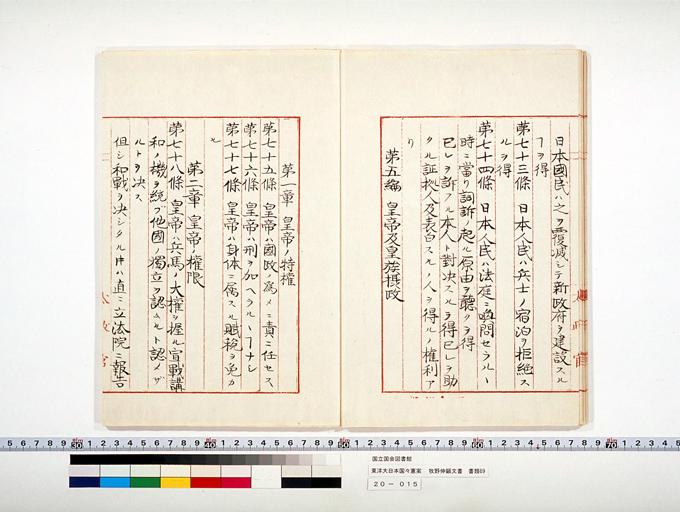 日本国民ハ之ヲ覆滅シテ新政府ヲ建設スル
ヿヲ得
第七十三條 日本人民ハ兵士ノ宿泊ヲ拒絶ス
ルヲ得
第七十四條 日本人民ハ法庭ニ喚問セラルヽ
時ニ當リ詞訴ノ起ル原由ヲ聽クヲ得
已レヲ訴フル本人ト對决スルヲ得已レヲ助
クル証拠人及表白スルノ人ヲ得ルノ権利ア
リ
第五編 皇帝及皇族摂政
第一章 皇帝ノ特權
第七十五條 皇帝ハ國政ノ為メニ責ニ任セス
第七十六條 皇帝ハ刑ヲ加ヘラルヽヿナシ
第七十七條 皇帝ハ身体ニ属スル賦税ヲ免カ
ル
第二章 皇帝ノ權限
第七十八條 皇帝ハ兵馬ノ大權ヲ握ル宣戰講
和ノ機ヲ統ブ他國ノ獨立ヲ認ムルト認メザ
ルトヲ决ス
但シ和戰ヲ决シタル時ハ直ニ立法院ニ報告
太政官
国立国会図書館
東洋大日本国々憲案 牧野伸顕文書 書類89
20-015
5 6 7 8 9 30 1 2 3 4 5 6 7 8 9 40 1 2 3 4 5 6 7 8 9 50 1 2 3 4 5 6 7 8 9 60 1 2 3 4 5 6 7 8 9 70 1 2 3 4